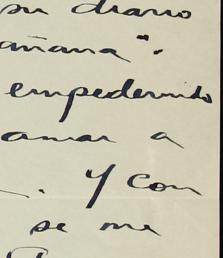 su diario
añana".
empedernido
amar a
. Y con
se me